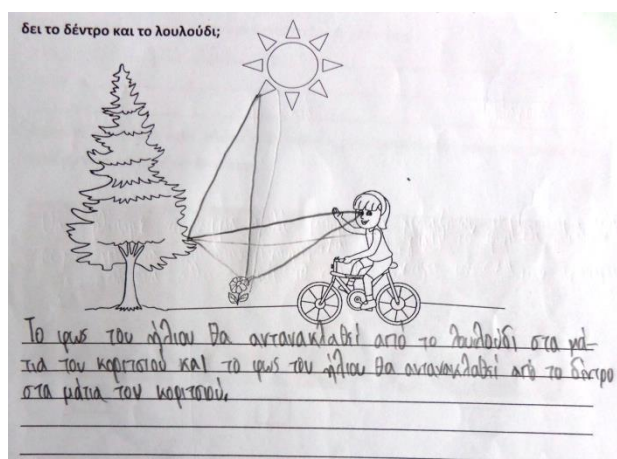 δει το δέντρο και το λουλούδι;
Το φως του ήλιου θα αντανακλαθεί από το λουλούδι στα μά-
τια του κοριτσιού και το φως του ήλιου θα αντανακλαθεί από το δέντρο
στα μάτια του κοριτσιού.